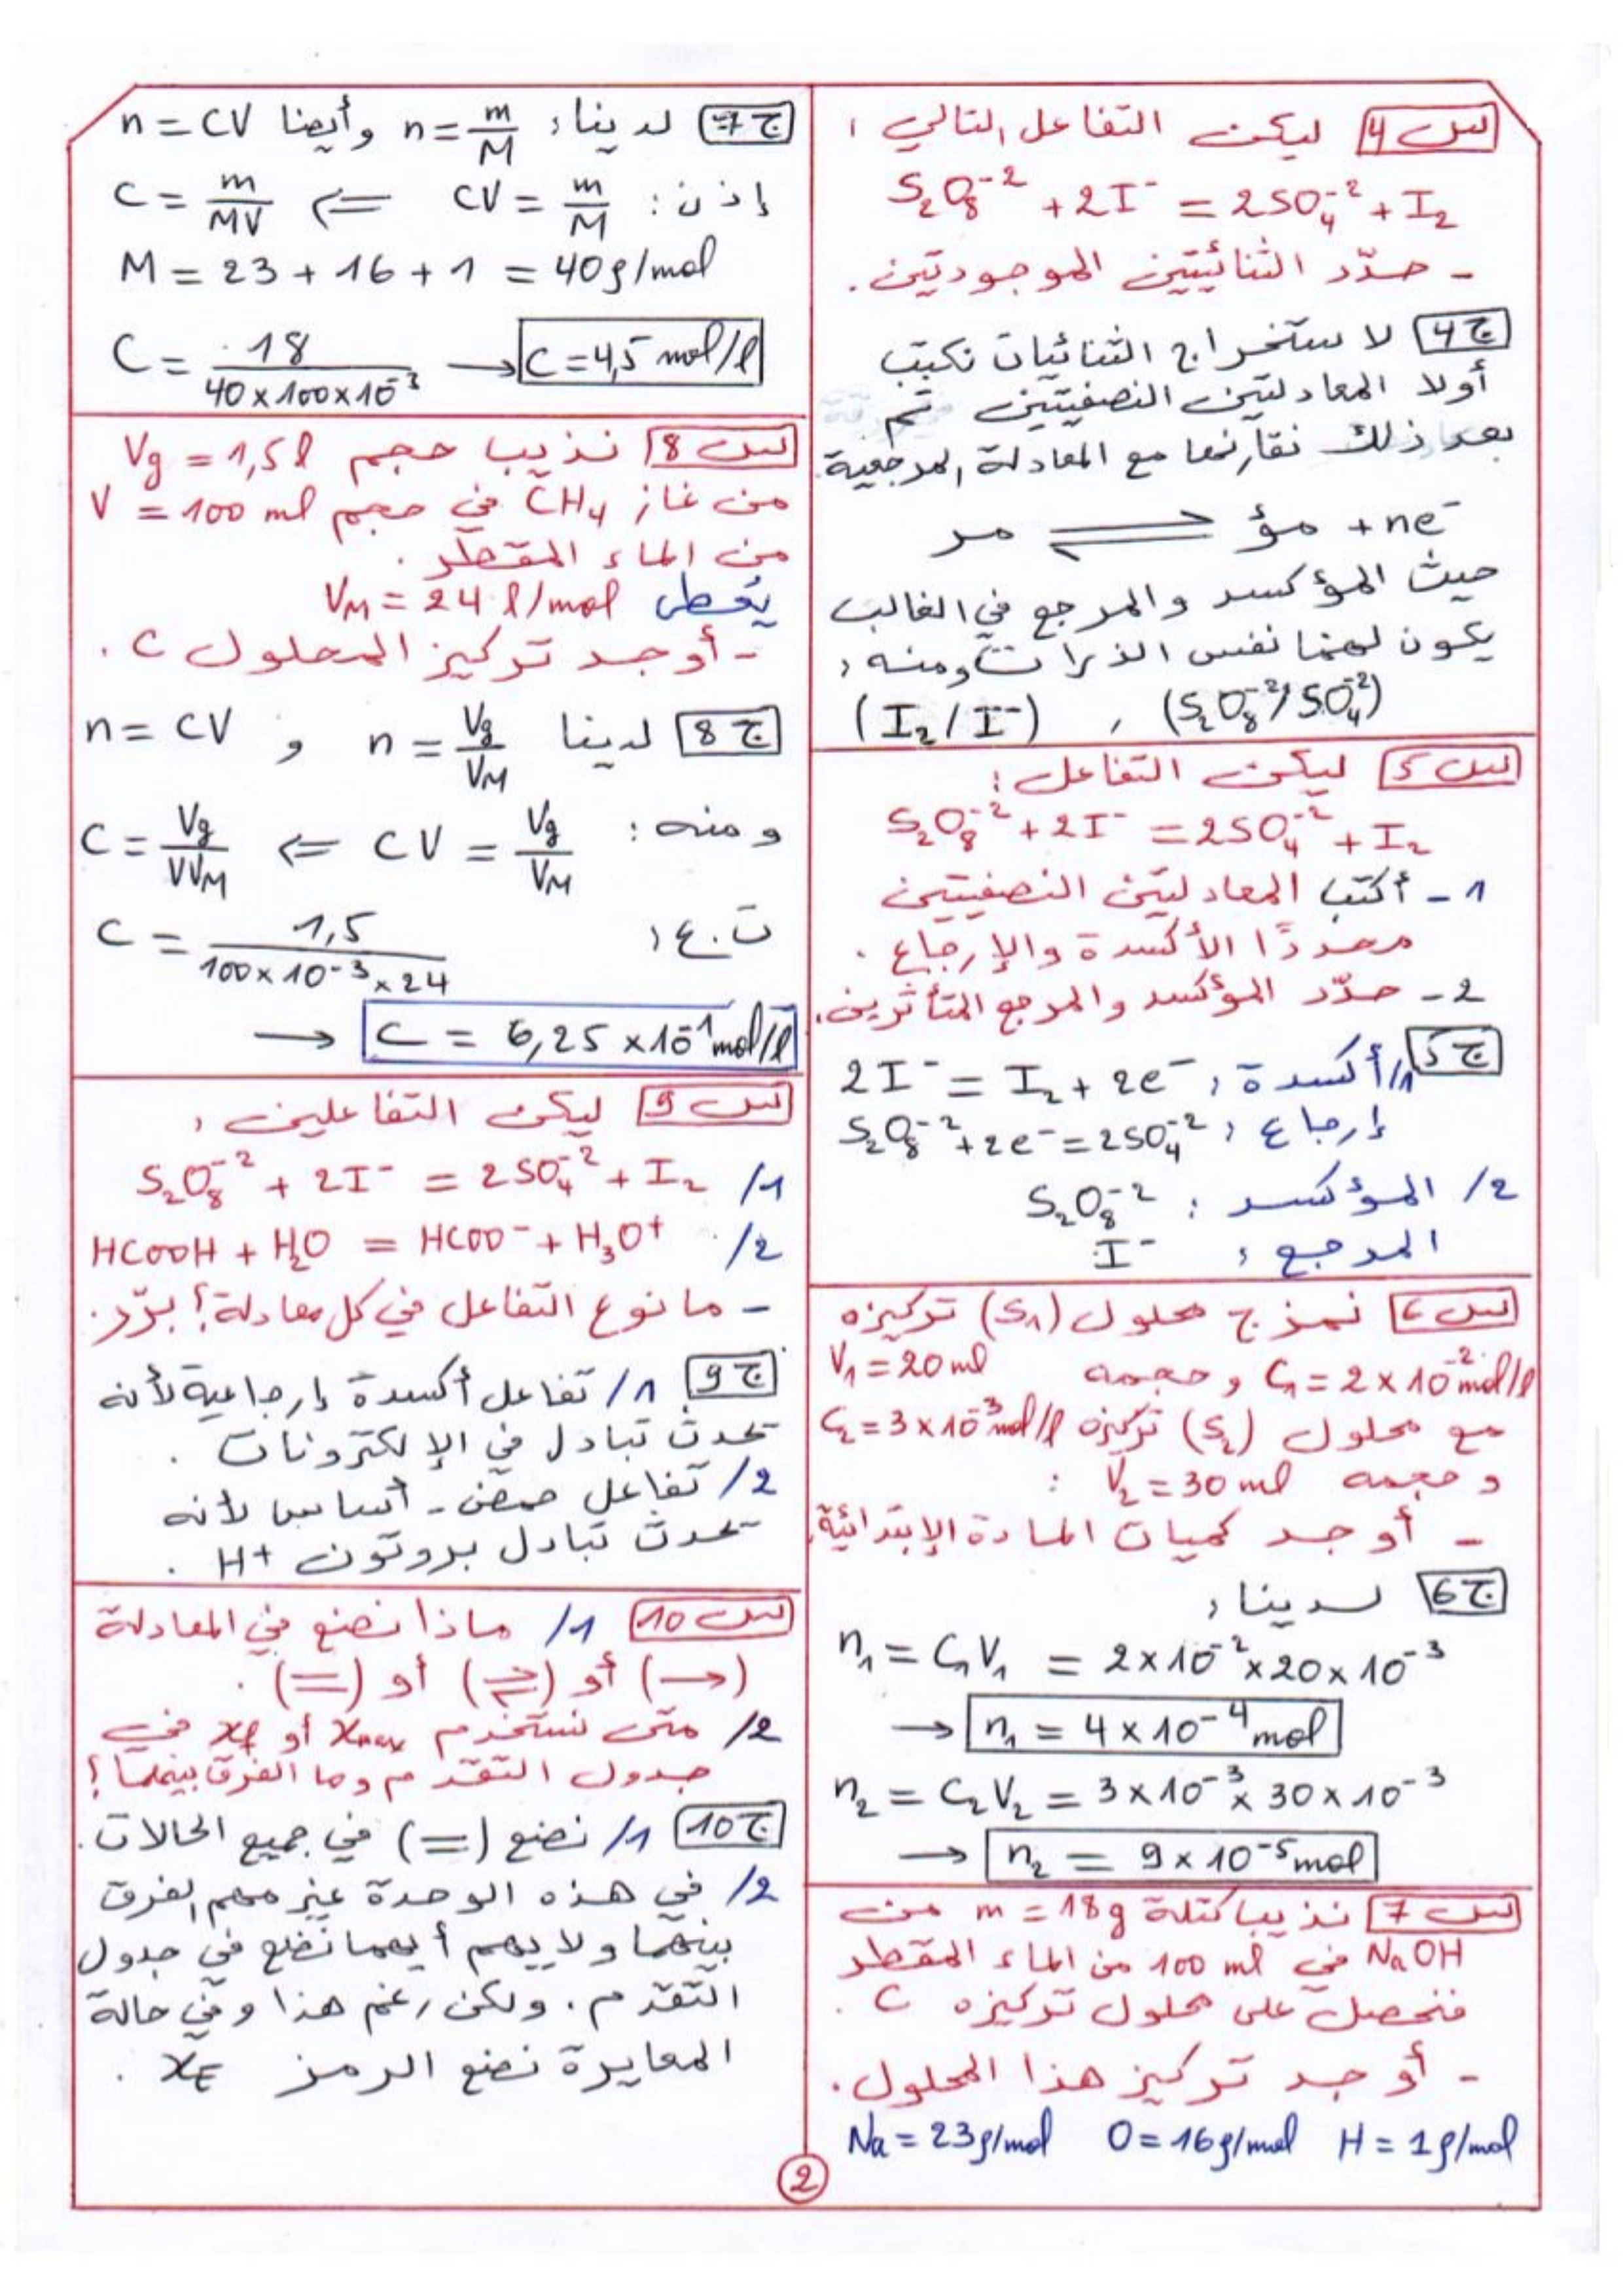 س 4 ليكن التفاعل التالي :
S₂O₈⁻² + 2I⁻ = 2SO₄⁻² + I₂
- حدّد الثنائيتين الموجودتين.
ج 4 لاستخراج الثنائيات نكتب
أولا المعادلتين النصفيتين ثم
بعد ذلك نقارنها مع المعادلة المرجعية
مؤ + ne⁻ ⇌ مر
حيث المؤكسد والمرجع في الغالب
يكون لهما نفس الذرات ومنه :
(S₂O₈⁻²/SO₄⁻²) , (I₂/I⁻)
س 5 ليكن التفاعل :
S₂O₈⁻² + 2I⁻ = 2SO₄⁻² + I₂
1 - أكتب المعادلتين النصفيتين
محددًا الأكسدة والإرجاع .
2 - حدّد المؤكسد والمرجع المتأثرين.
ج 5 1/ أكسدة : 2I⁻ = I₂ + 2e⁻
إرجاع : S₂O₈⁻² + 2e⁻ = 2SO₄⁻²
2/ المؤكسد : S₂O₈⁻²
المرجع : I⁻
س 6 نمزج محلول (S₁) تركيزه
C₁ = 2 × 10⁻² mol/l وحجمه V₁ = 20 ml
مع محلول (S₂) تركيزه C₂ = 3 × 10⁻³ mol/l
وحجمه V₂ = 30 ml :
- أوجد كميات المادة الإبتدائية.
ج 6 لدينا :
n₁ = C₁V₁ = 2 × 10⁻² × 20 × 10⁻³
→ n₁ = 4 × 10⁻⁴ mol
n₂ = C₂V₂ = 3 × 10⁻³ × 30 × 10⁻³
→ n₂ = 9 × 10⁻⁵ mol
س 7 نذيب كتلة m = 18g من
NaOH في 100 ml من الماء المقطر
فنحصل على محلول تركيزه C .
- أوجد تركيز هذا المحلول.
Na = 23g/mol O = 16g/mol H = 1g/mol
ج 7 لدينا : n = m/M وأيضا n = CV
إذن : CV = m/M ⇐ C = m/MV
M = 23 + 16 + 1 = 40g/mol
C = 18/40×100×10⁻³ → C = 4,5 mol/l
س 8 نذيب حجم Vg = 1,5 l
من غاز CH₄ في حجم V = 100 ml
من الماء المقطر .
يُعطى V_M = 24 l/mol
- أوجد تركيز المحلول C .
ج 8 لدينا n = Vg/V_M و n = CV
ومنه : CV = Vg/V_M ⇐ C = Vg/VV_M
ت.ع : C = 1,5/100×10⁻³×24
→ C = 6,25 × 10⁻¹ mol/l
س 9 ليكن التفاعلين :
1/ S₂O₈⁻² + 2I⁻ = 2SO₄⁻² + I₂
2/ HCOOH + H₂O = HCOO⁻ + H₃O⁺
- ما نوع التفاعل في كل معادلة؟ برّر.
ج 9 1/ تفاعل أكسدة إرجاعية لأنه
تحدث تبادل في الإلكترونات .
2/ تفاعل حمض - أساس لأنه
تحدث تبادل بروتون H⁺ .
س 10 1/ ماذا نضع في المعادلة
(→) أو (⇌) أو (=) .
2/ متى نستخدم x_max أو x_f في
جدول التقدم وما الفرق بينهما؟
ج 10 1/ نضع (=) في جميع الحالات.
2/ في هذه الوحدة غير مهم الفرق
بينهما ولا يهم أيهما نضع في جدول
التقدم. ولكن رغم هذا وفي حالة
المعايرة نضع الرمز x_E .
2